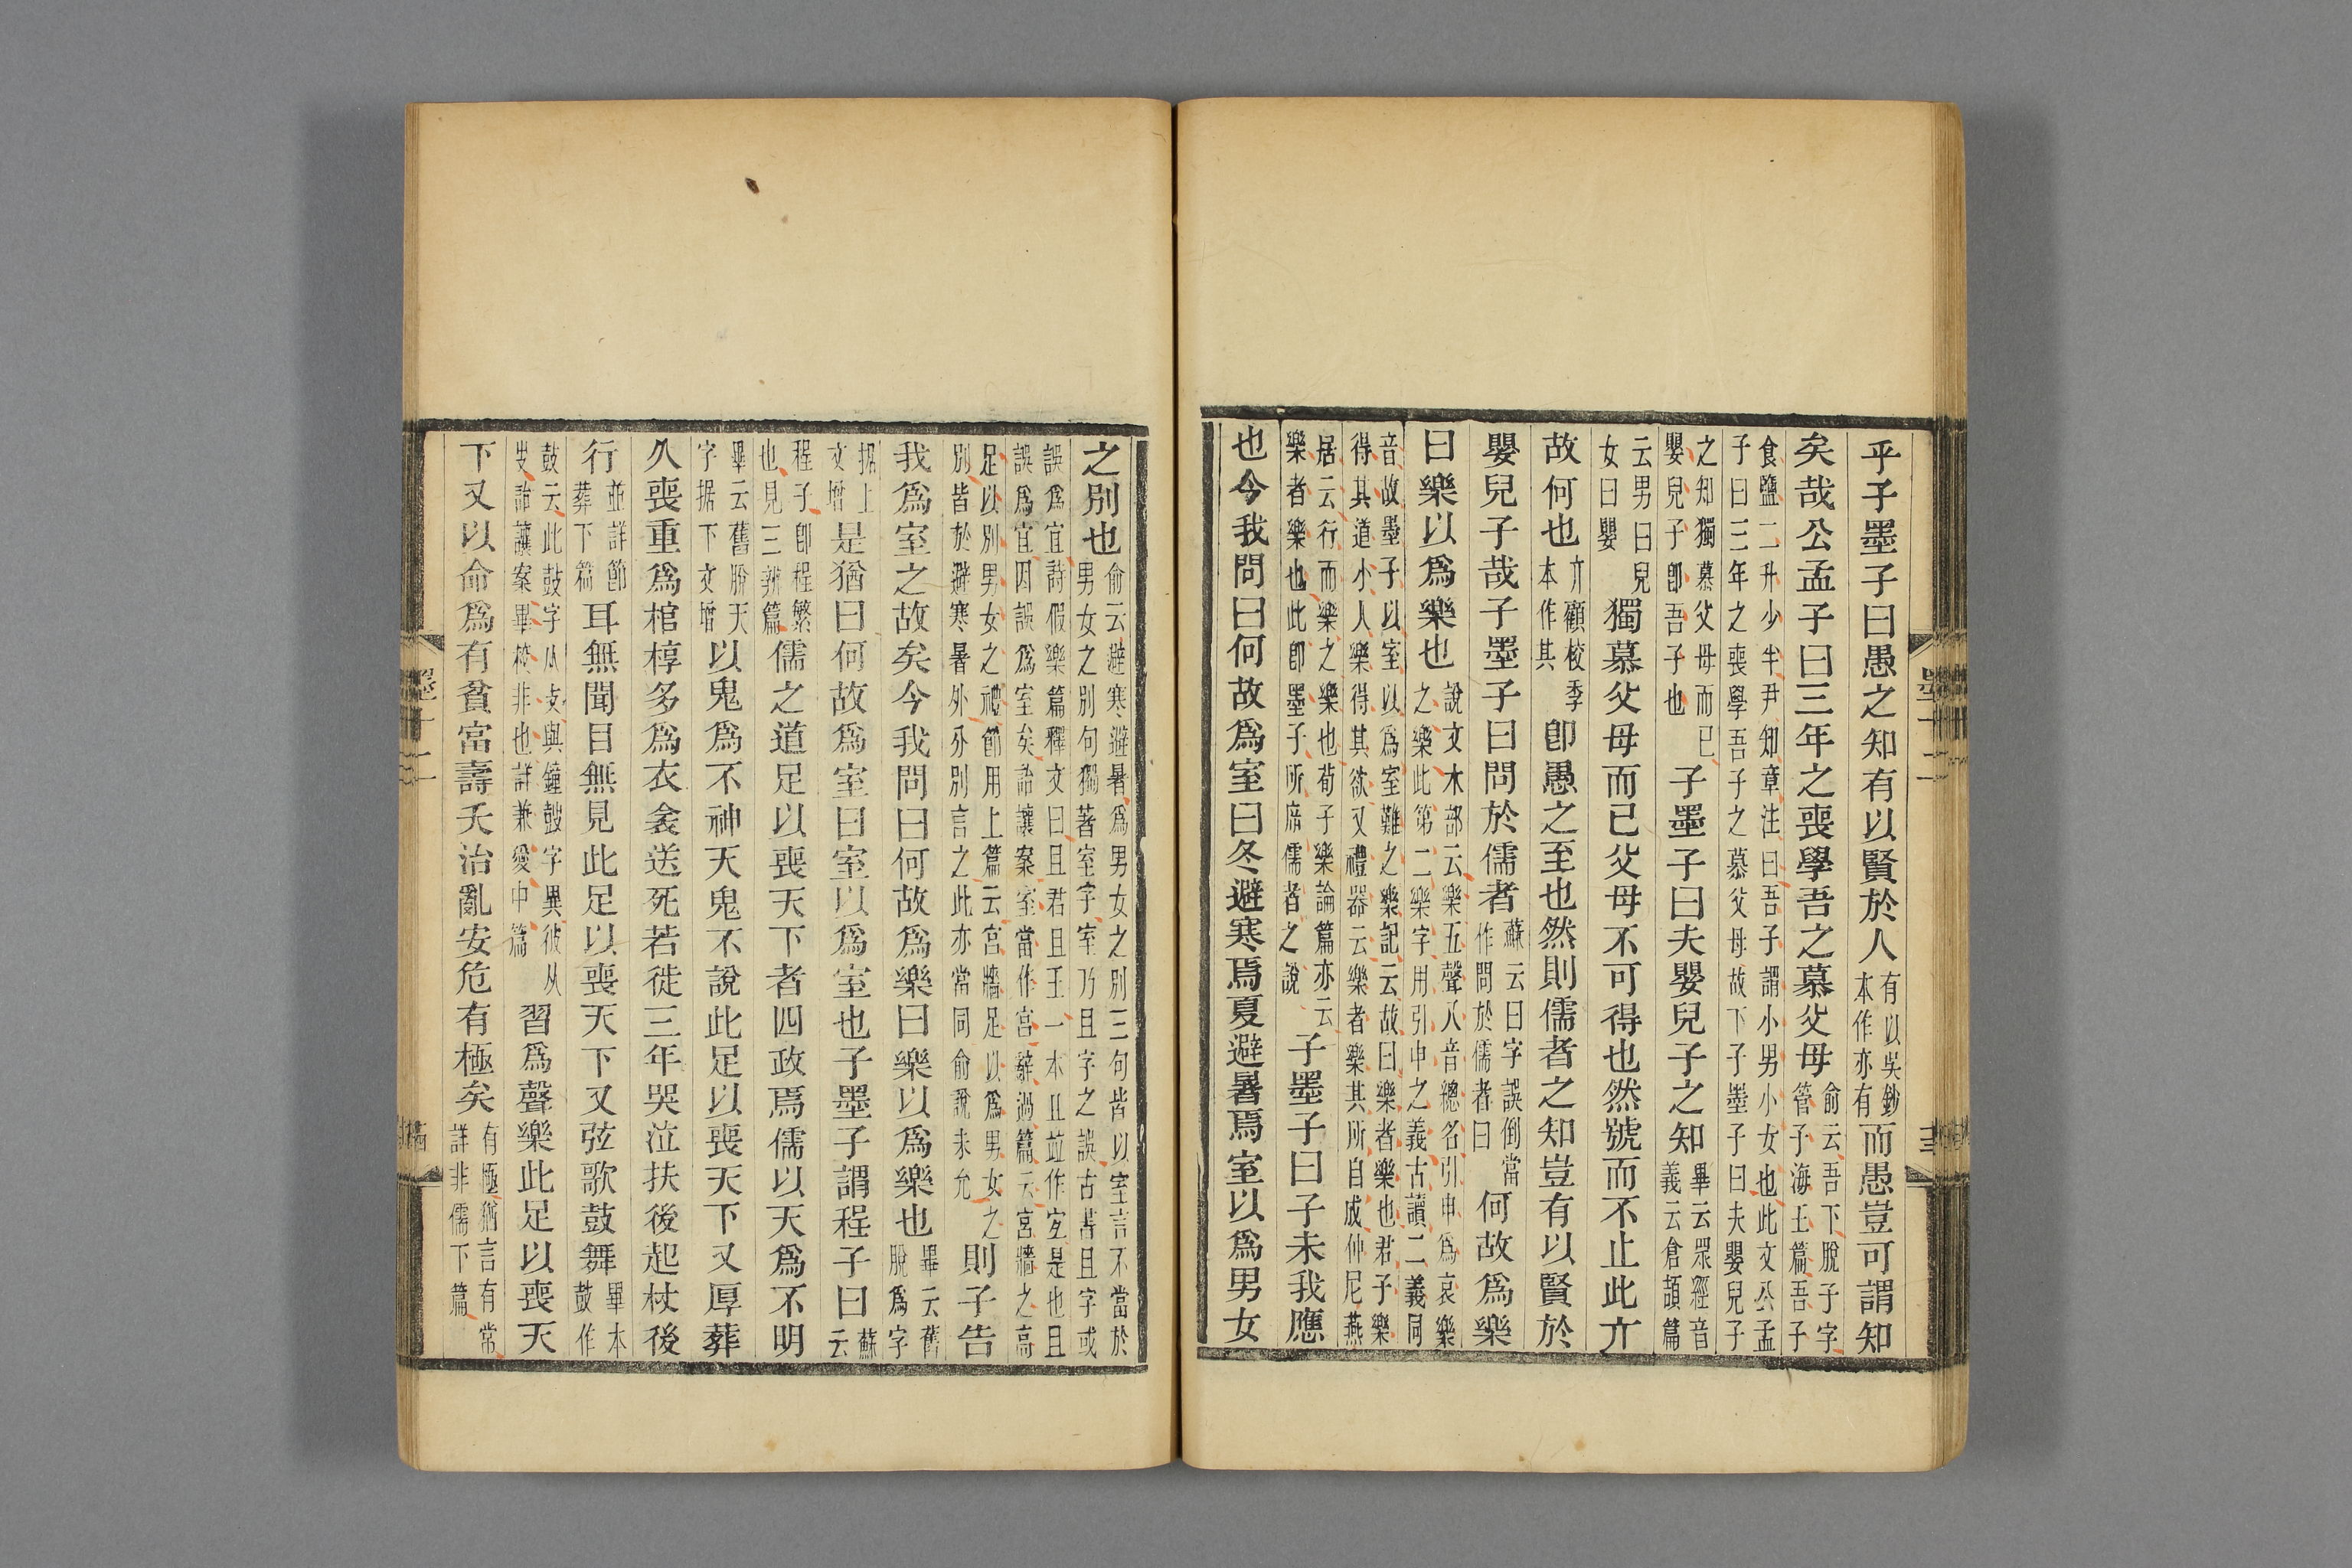 乎子墨子曰愚之知有以賢於人有以吳鈔本作亦有而愚豈可謂知
矣哉公孟子曰三年之喪學吾之慕父母俞云吾下脫子字管子海王篇吾子
食鹽二升少半尹知章注曰吾子謂小男小女也此文公孟子曰三年之喪學吾子之慕父母故下子墨子曰夫嬰兒子
之知獨慕父母而已嬰兒子卽吾子也子墨子曰夫嬰兒子之知畢云眾經音義云倉頡篇
云男曰兒女曰嬰獨慕父母而已父母不可得也然號而不止此亓
故何也亓顧校季本作其卽愚之至也然則儒者之知豈有以賢於
嬰兒子哉子墨子曰問於儒者蘇云曰字誤倒當作問於儒者曰何故爲樂
曰樂以爲樂也說文木部云樂五聲八音總名引申爲哀樂之樂此第二樂字用引申之義古讀二義同
音故墨子以室以爲室難之樂記云故曰樂者樂也君子樂得其道小人樂得其欲又禮器云樂者樂其所自成仲尼燕
居云行而樂之樂也荀子樂論篇亦云樂者樂也此卽墨子所席儒者之說子墨子曰子未我應
也今我問曰何故爲室曰冬避寒焉夏避暑焉室以爲男女
墨十二
十三
之別也俞云避寒避暑爲男女之別三句皆以室言不當於男女之別句獨著室字室乃且字之誤古書且字或
誤爲宜詩假樂篇釋文曰且君且王一本且並作宜是也且誤爲宜因誤爲室矣詒讓案室當作宮辭過篇云宮牆之高
足以別男女之禮節用上篇云宮牆足以爲男女之別皆於避寒暑外別言之此亦當同俞說未允則子告
我爲室之故矣今我問曰何故爲樂曰樂以爲樂也畢云舊脫爲字
据上文增是猶曰何故爲室曰室以爲室也子墨子謂程子曰蘇云
程子卽程繁也見三辯篇儒之道足以喪天下者四政焉儒以天爲不明
畢云舊脫天字据下文增以鬼爲不神天鬼不說此足以喪天下又厚葬
久喪重爲棺椁多爲衣衾送死若徙三年哭泣扶後起杖後
行並詳節葬下篇耳無聞目無見此足以喪天下又弦歌鼓舞畢本鼓作
鼔云此鼓字从攴與鐘鼓字異彼从攴詒讓案畢校非也詳兼愛中篇習爲聲樂此足以喪天
下又以命爲有貧富壽夭治亂安危有極矣有極猶言有常詳非儒下篇
墨十二